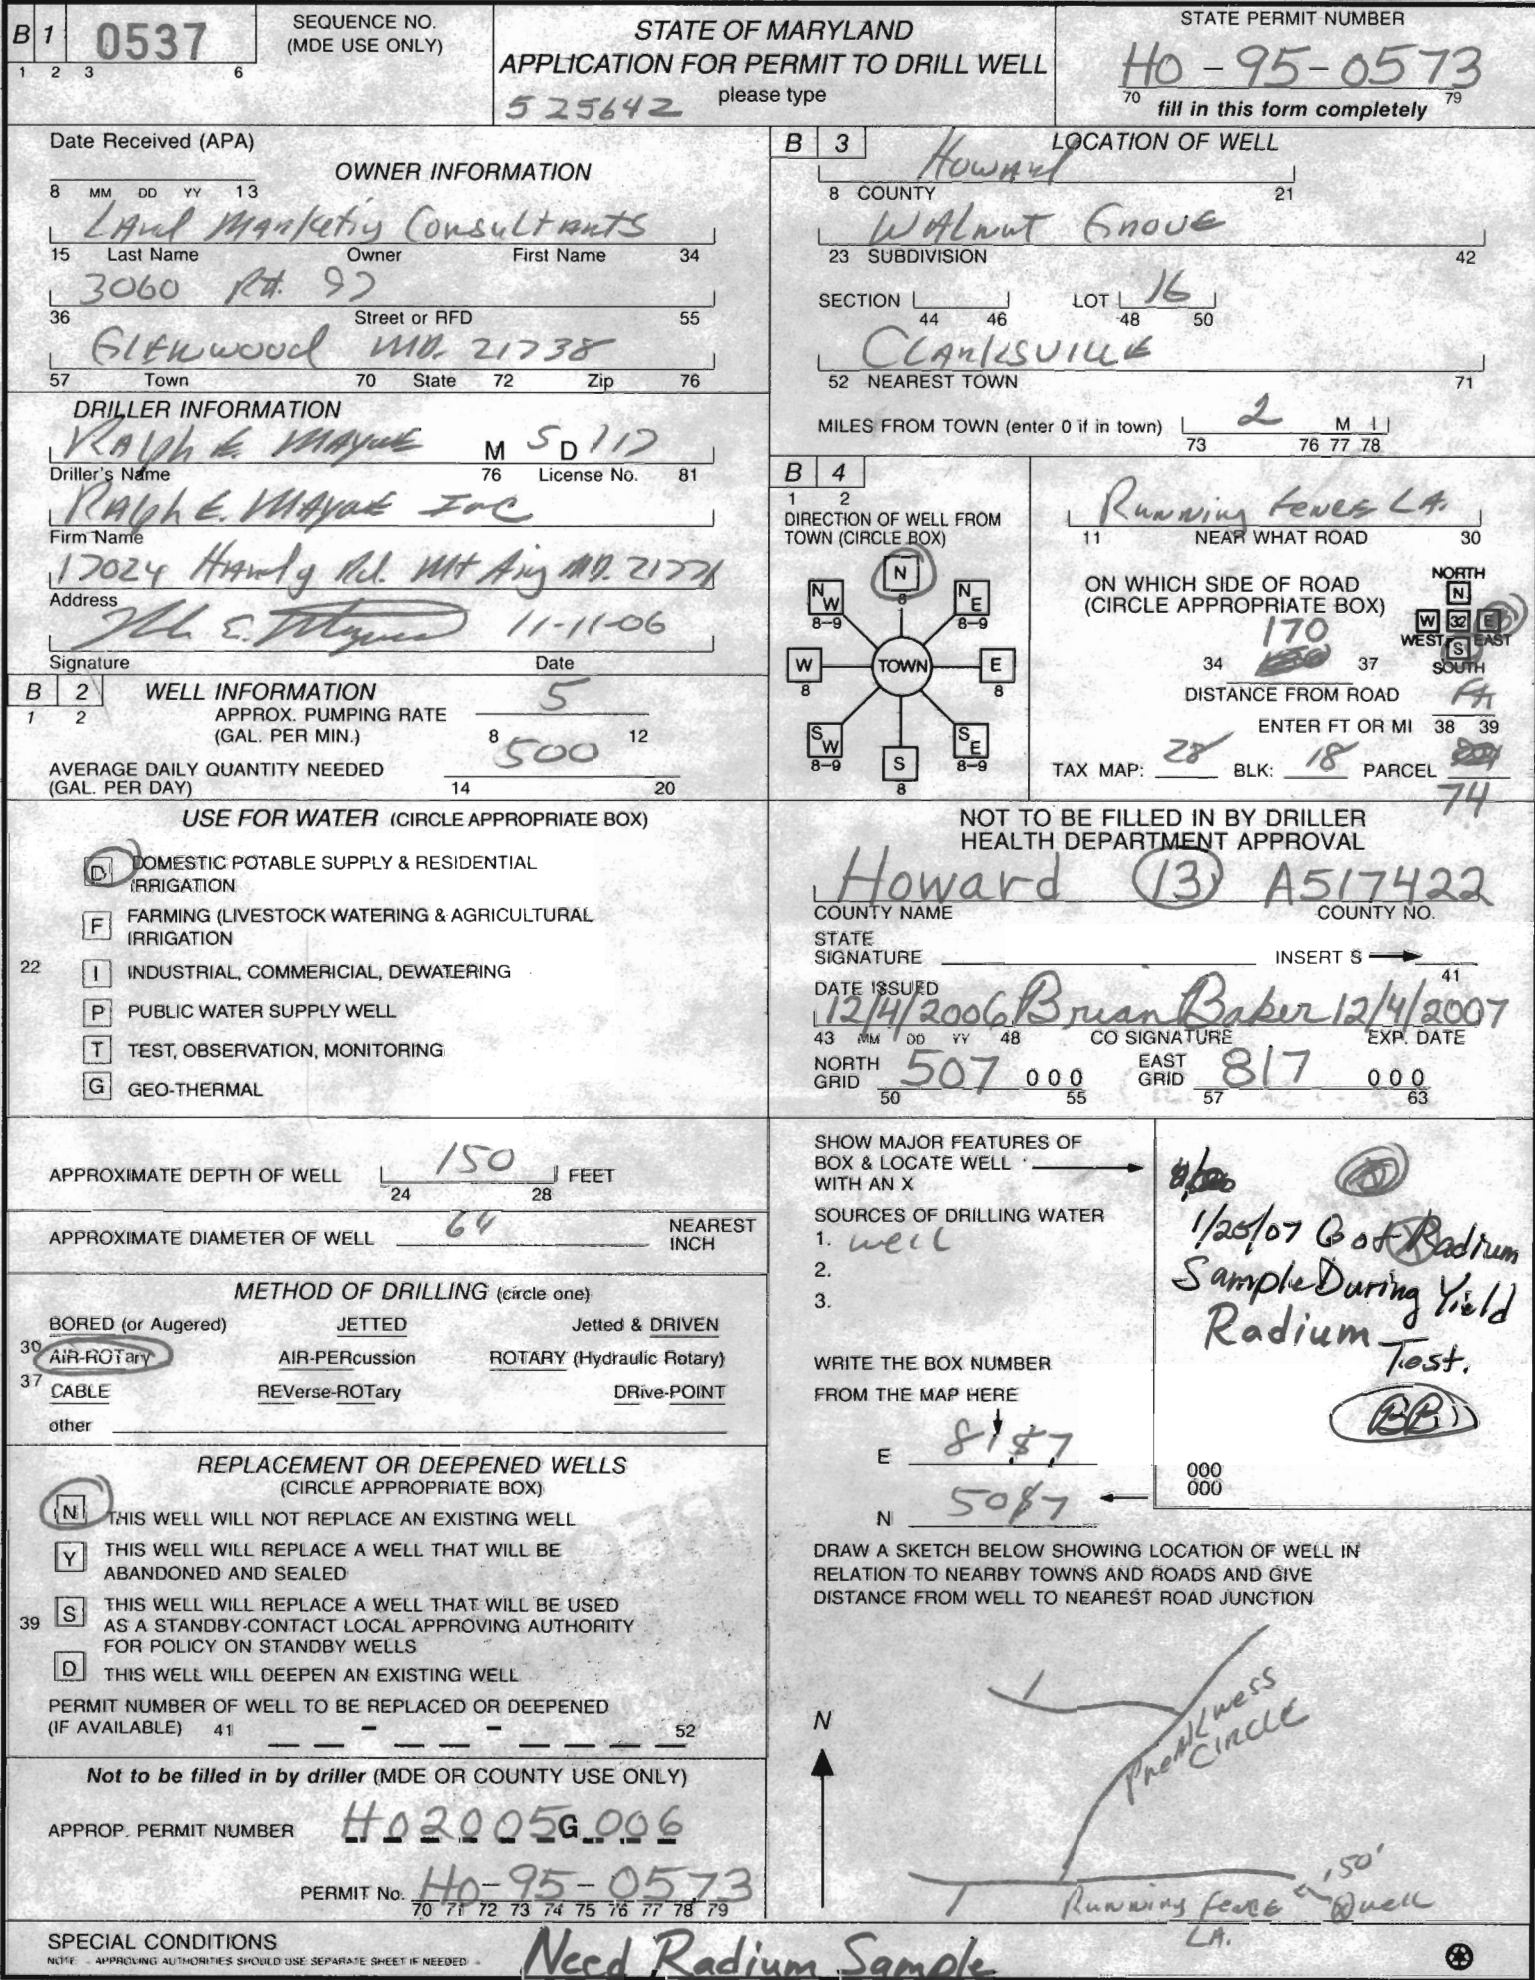 B 1 0537
1 2 3 6
SEQUENCE NO.
(MDE USE ONLY)
STATE OF MARYLAND
APPLICATION FOR PERMIT TO DRILL WELL
please type
525642
STATE PERMIT NUMBER
HO-95-0573
70 79
fill in this form completely
Date Received (APA)
8 MM DD YY 13
OWNER INFORMATION
Land Marketing Consultants
15 Last Name Owner First Name 34
3060 Rt. 97
36 Street or RFD 55
Glenwood MD. 21738
57 Town 70 State 72 Zip 76
DRILLER INFORMATION
Ralph E. Mayne M S D 117
Driller's Name 76 License No. 81
Ralph E. Mayne Inc
Firm Name
17024 Hardy Rd. Mt Airy MD. 21771
Address
11-11-06
Signature Date
B 2 WELL INFORMATION
1 2
APPROX. PUMPING RATE 5
(GAL. PER MIN.) 8 12
AVERAGE DAILY QUANTITY NEEDED 500
(GAL. PER DAY) 14 20
USE FOR WATER (CIRCLE APPROPRIATE BOX)
D DOMESTIC POTABLE SUPPLY & RESIDENTIAL
IRRIGATION
F FARMING (LIVESTOCK WATERING & AGRICULTURAL
IRRIGATION
22 I INDUSTRIAL, COMMERICIAL, DEWATERING
P PUBLIC WATER SUPPLY WELL
T TEST, OBSERVATION, MONITORING
G GEO-THERMAL
APPROXIMATE DEPTH OF WELL 150 FEET
24 28
APPROXIMATE DIAMETER OF WELL NEAREST
INCH
METHOD OF DRILLING (circle one)
BORED (or Augered) JETTED Jetted & DRIVEN
30 AIR-ROTary AIR-PERcussion ROTARY (Hydraulic Rotary)
37 CABLE REVerse-ROTary DRive-POINT
other
REPLACEMENT OR DEEPENED WELLS
(CIRCLE APPROPRIATE BOX)
N THIS WELL WILL NOT REPLACE AN EXISTING WELL
Y THIS WELL WILL REPLACE A WELL THAT WILL BE
ABANDONED AND SEALED
39 S THIS WELL WILL REPLACE A WELL THAT WILL BE USED
AS A STANDBY-CONTACT LOCAL APPROVING AUTHORITY
FOR POLICY ON STANDBY WELLS
D THIS WELL WILL DEEPEN AN EXISTING WELL
PERMIT NUMBER OF WELL TO BE REPLACED OR DEEPENED
(IF AVAILABLE) 41 - - 52
Not to be filled in by driller (MDE OR COUNTY USE ONLY)
APPROP. PERMIT NUMBER HO2005G006
PERMIT No. HO-95-0573
70 71 72 73 74 75 76 77 78 79
B 3 LOCATION OF WELL
Howard
8 COUNTY 21
Walnut Grove
23 SUBDIVISION 42
SECTION LOT 16
44 46 48 50
Clarksville
52 NEAREST TOWN 71
MILES FROM TOWN (enter 0 if in town) 2 M I
73 76 77 78
B 4
1 2
DIRECTION OF WELL FROM
TOWN (CIRCLE BOX)
N
8
NW NE
8-9 8-9
W TOWN E
8 8
SW SE
8-9 8-9
S
8
Running Fence LA.
11 NEAR WHAT ROAD 30
ON WHICH SIDE OF ROAD
(CIRCLE APPROPRIATE BOX)
NORTH
N
W 32 E
WEST EAST
S
SOUTH
170
34 37
DISTANCE FROM ROAD
ENTER FT OR MI Ft
38 39
TAX MAP: 28 BLK: 18 PARCEL
74
NOT TO BE FILLED IN BY DRILLER
HEALTH DEPARTMENT APPROVAL
Howard 13 A517422
COUNTY NAME COUNTY NO.
STATE
SIGNATURE INSERT S
41
DATE ISSUED
12/4/2006 Brian Baker 12/4/2007
43 MM DD YY 48 CO SIGNATURE EXP. DATE
NORTH
GRID 507 000
50 55
EAST
GRID 817 000
57 63
SHOW MAJOR FEATURES OF
BOX & LOCATE WELL
WITH AN X
SOURCES OF DRILLING WATER
1. well
2.
3.
1/25/07 Got Radium
Sample During Yield
Radium Test.
BB
WRITE THE BOX NUMBER
FROM THE MAP HERE
E
N
000
000
DRAW A SKETCH BELOW SHOWING LOCATION OF WELL IN
RELATION TO NEARBY TOWNS AND ROADS AND GIVE
DISTANCE FROM WELL TO NEAREST ROAD JUNCTION
N
Preakness
Circle
Running Fence
LA.
150'
well
SPECIAL CONDITIONS
NOTE - APPROVING AUTHORITIES SHOULD USE SEPARATE SHEET IF NEEDED -
Need Radium Sample